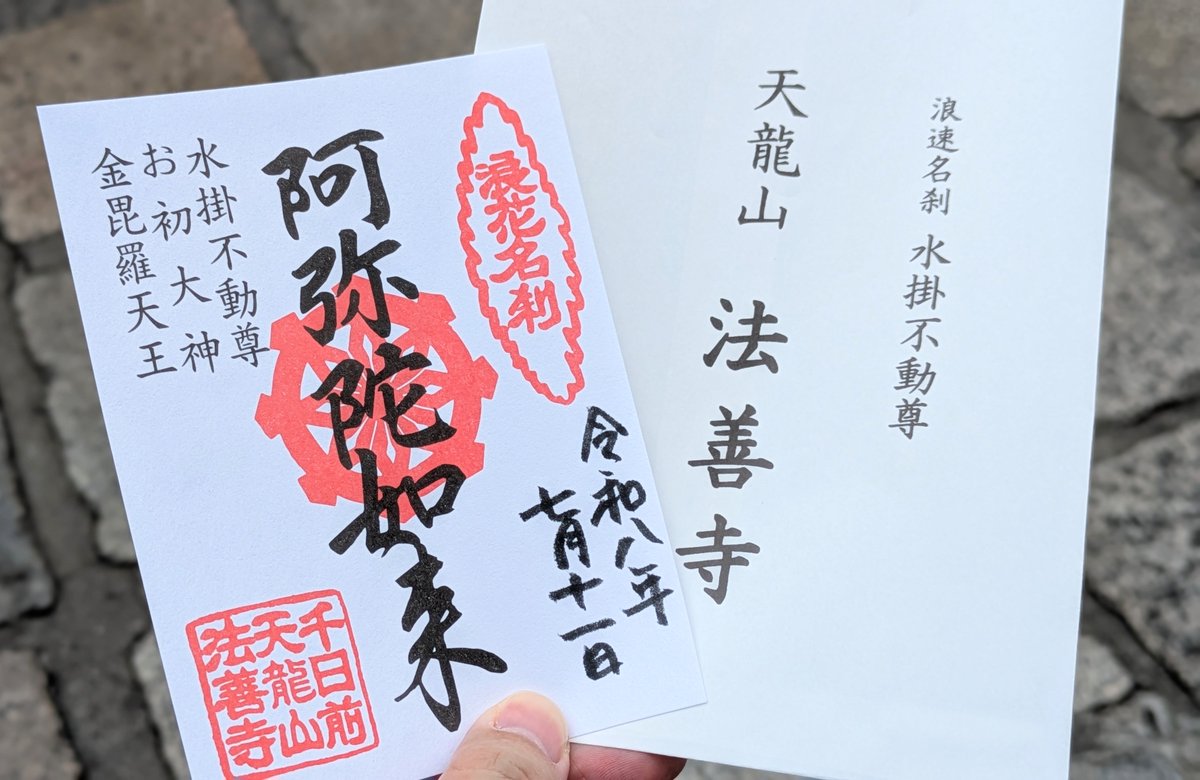 浪花名刹
令和八年
七月十一日
阿弥陀如来
水掛不動尊
お初大神
金毘羅天王
千日前
天龍山
法善寺
浪速名刹 水掛不動尊
天龍山 法善寺